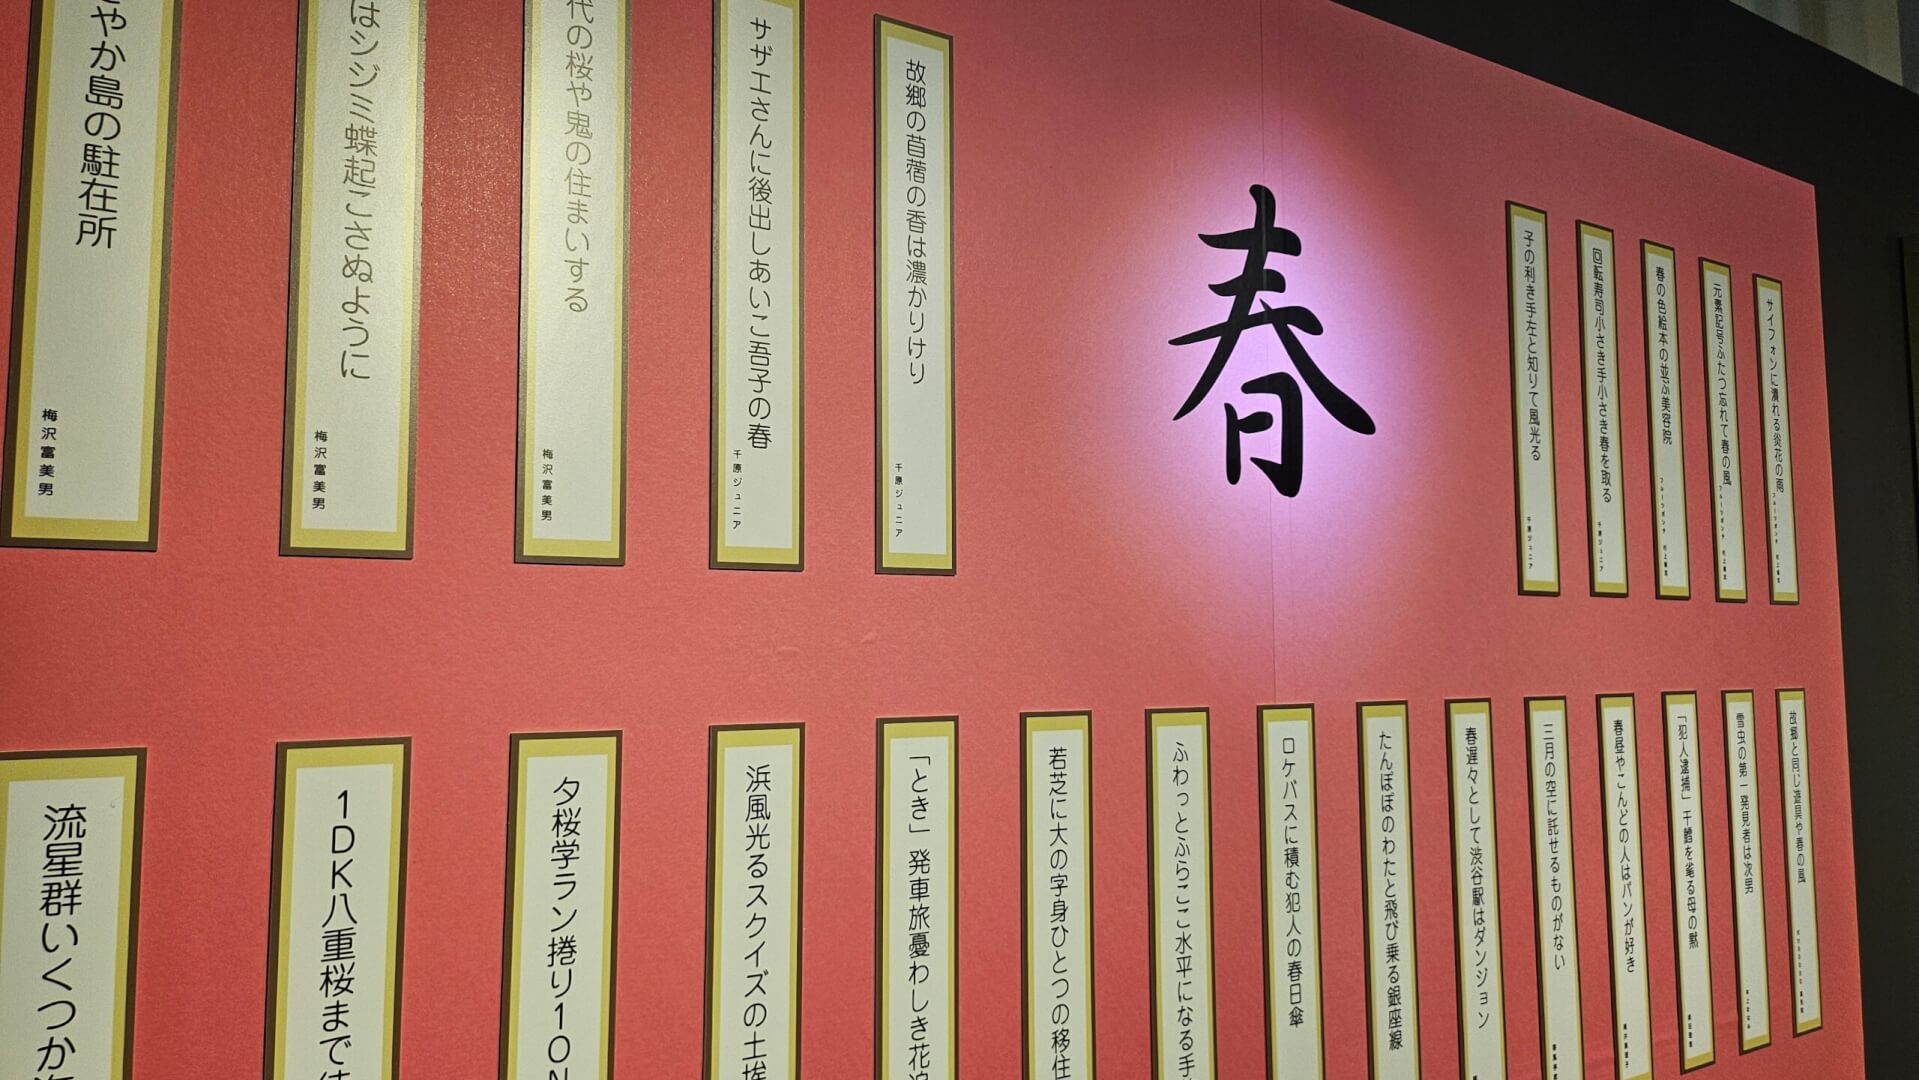 春
サイフォンに潰れる炎花の雨
フルーツポンチ 村上健志
元素記号ふたつ忘れて春の風
フルーツポンチ 村上健志
春の色絵本の並ぶ美容院
フルーツポンチ 村上健志
回転寿司小さき手小さき春を取る
千原ジュニア
子の利き手左と知りて風光る
千原ジュニア
故郷の苜蓿の香は濃かりけり
千原ジュニア
サザエさんに後出しあいこ吾子の春
千原ジュニア
代の桜や鬼の住まいする
梅沢富美男
はシジミ蝶起こさぬように
梅沢富美男
やか島の駐在所
梅沢富美男
故郷と同じ遊具や春の風
雪虫の第一発見者は次男
「犯人逮捕」干鱈を毟る母の黙
春昼やこんどの人はパンが好き
三月の空に託せるものがない
春遅々として渋谷駅はダンジョン
たんぽぽのわたと飛び乗る銀座線
ロケバスに積む犯人の春日傘
ふわっとふらここ水平になる手
若芝に大の字身ひとつの移住
「とき」発車旅憂わしき花
浜風光るスクイズの土埃
夕桜学ラン捲り10N
1DK八重桜まで
流星群いくつか